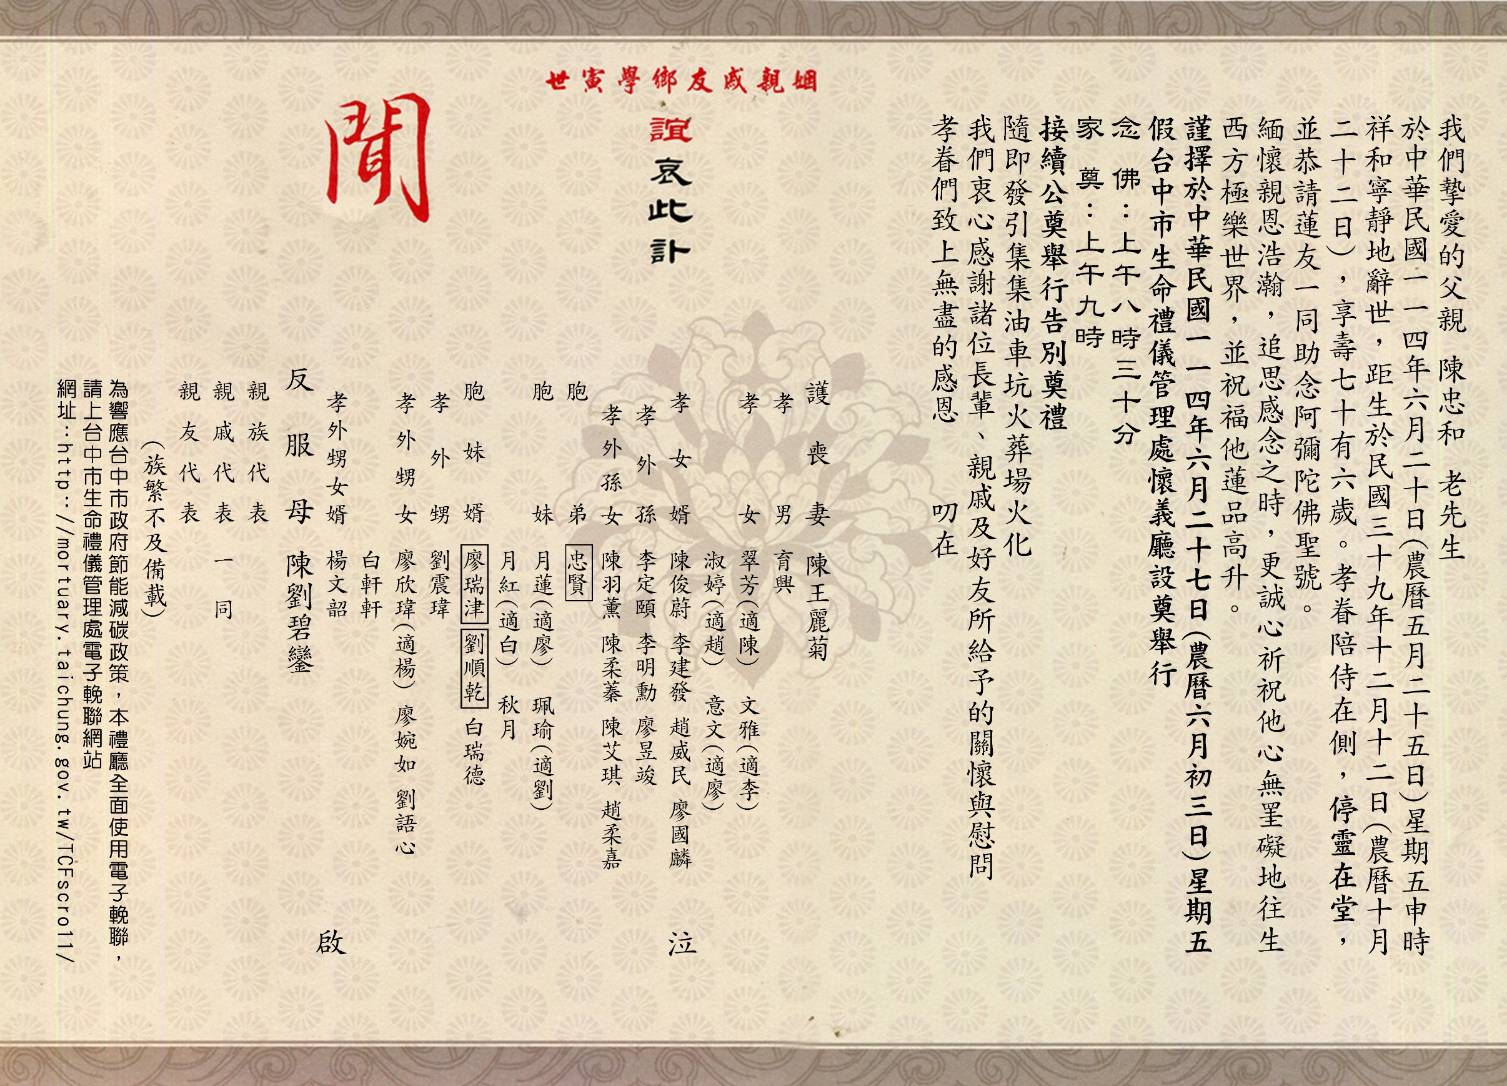 我們摯愛的父親　陳忠和　老先生
於中華民國一一四年六月二十日(農曆五月二十五日)星期五申時
祥和寧靜地辭世，距生於民國三十九年十二月十二日(農曆十月
二十二日)，享壽七十有六歲。孝眷陪侍在側，停靈在堂，
並恭請蓮友一同助念阿彌陀佛聖號。
緬懷親恩浩瀚，追思感念之時，更誠心祈祝他心無罣礙地往生
西方極樂世界，並祝福他蓮品高升。
謹擇於中華民國一一四年六月二十七日(農曆六月初三日)星期五
假台中市生命禮儀管理處懷義廳設奠舉行
念　佛：上午八時三十分
家　奠：上午九時
接續公奠舉行告別奠禮
隨即發引集集油車坑火葬場火化
我們衷心感謝諸位長輩、親戚及好友所給予的關懷與慰問
孝眷們致上無盡的感恩　　叨在
姻親戚友鄉學寅世
誼哀此訃
聞
護喪妻　陳王麗菊
孝男　育興
孝女　翠芳(適陳)　文雅(適李)
淑婷(適趙)　意文(適廖)
孝女婿　陳俊蔚　李建發　趙威民　廖國麟
孝外孫　李定頤　李明勳　廖昱竣
孝外孫女　陳羽薰　陳柔蓁　陳艾琪　趙柔嘉
胞弟　忠賢
胞妹　月蓮(適廖)　珮瑜(適劉)
月紅(適白)　秋月
胞妹婿　廖瑞津　劉順乾　白瑞德
孝外甥　劉震瑋
孝外甥女　廖欣瑋(適楊)　廖婉如　劉語心
白軒軒
孝外甥女婿　楊文韶
泣
反服母　陳劉碧鑾
啟
親族代表
親戚代表　一同
親友代表
(族繁不及備載)
為響應台中市政府節能減碳政策，本禮廳全面使用電子輓聯，
請上台中市生命禮儀管理處電子輓聯網站
網址：http://mortuary.taichung.gov.tw/TCFscroll/